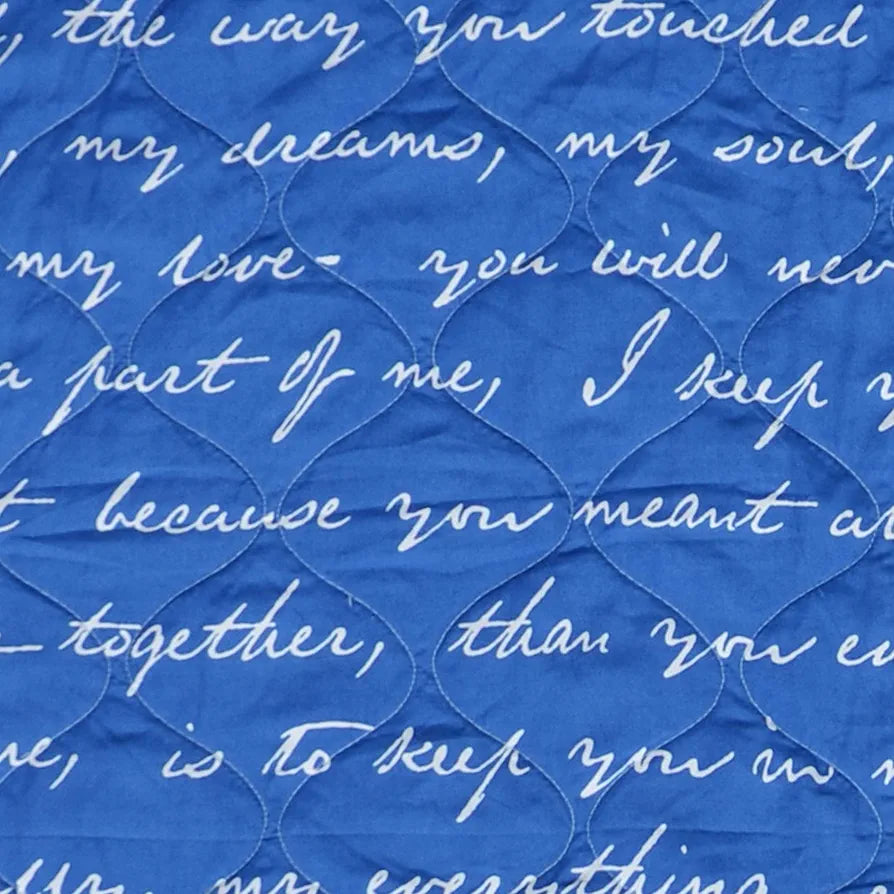 , the way you touched
, my dreams, my soul,
my love- you will nev
a part of me, I keep y
t because you meant
together, than you
is to keep you in
my everything